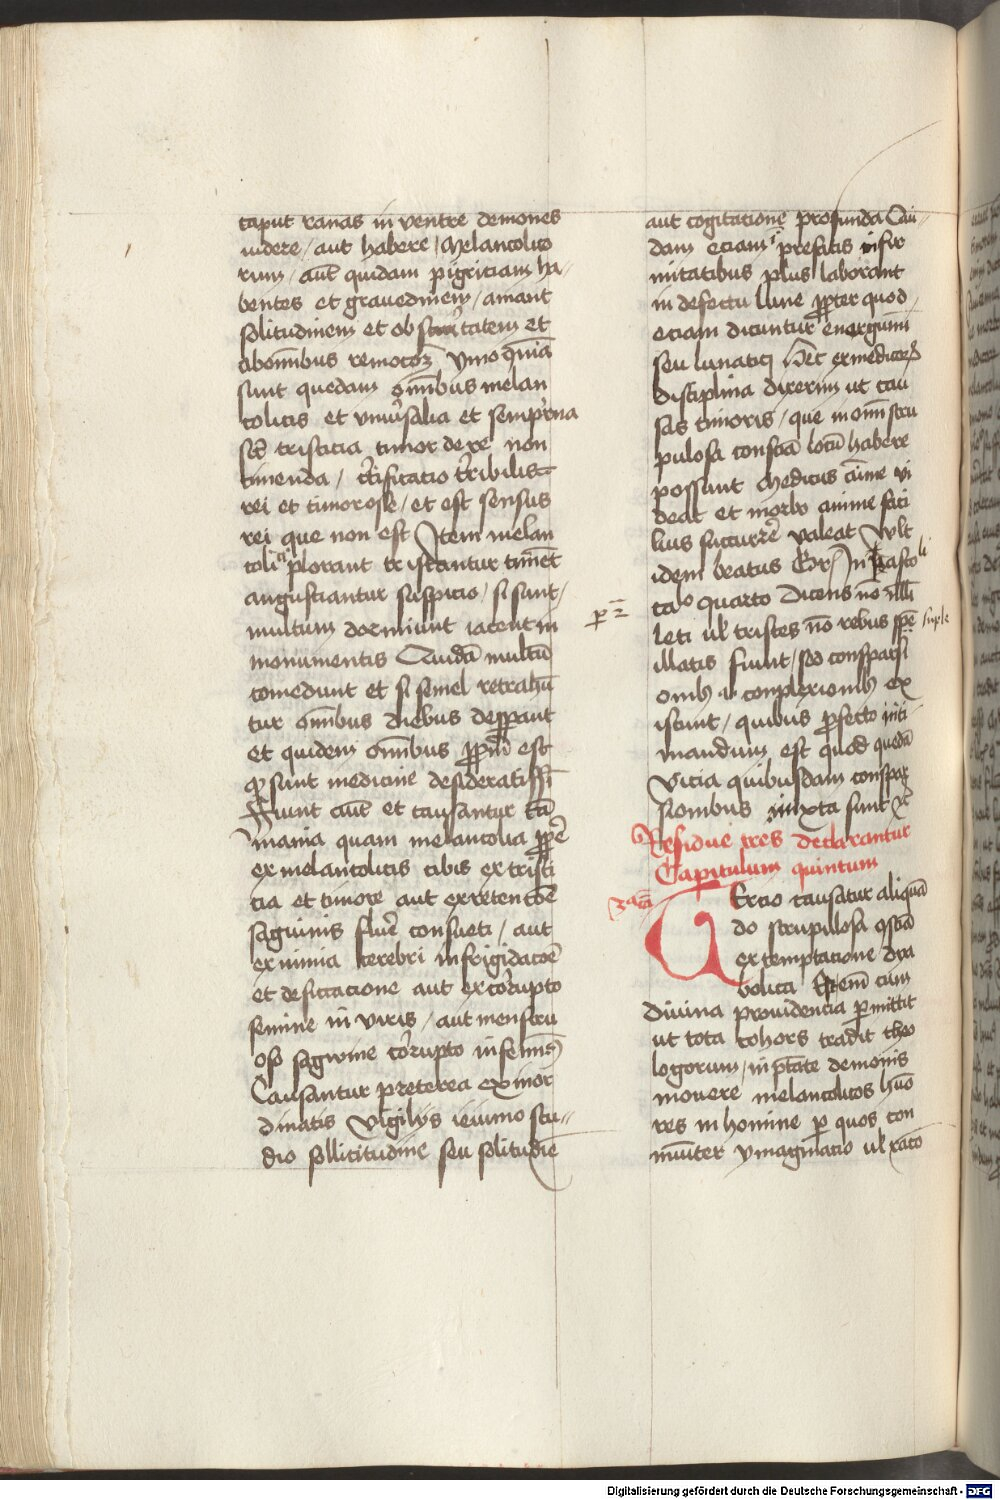 caput ranas in ventre demones
videre / aut habere / Melancolico
rum / aut quidam pigriciam ha-
bentes et gravedinem / amant
solitudinem et obscuritatem et
ab omnibus remotos ymo quia
sunt quedam omnibus melan
colicis et universalia et semperna
scilicet tristicia timor de re non
timenda / certificatio terribilis
rei et timorose / et est sensus
rei que non est Item melan
colici plorant tristantur timent
angustiantur suspicio / si sunt /
multum dormiunt iacent in
monumentis Quidam multum
comedunt et si semel retrahun
tur omnibus diebus desperant
et quidem omnibus proprium est
quod sunt medicine desideratissimi
Fiunt autem et causantur tam
mania quam melancolia proprie
ex melancolicis cibis ex tristi
cia et timore aut ex retencione
sanguinis fluere consueti / aut
ex nimia cerebri infrigidacione
et desiccacione aut ex corrupto
semine in viris / aut menstru
oso sagwine corrupto in feminis
Causantur preterea ex inor
dinatis vigilijs ieiunio stu-
dio sollicitudine seu solitudine
aut cogitatione profunda Qui-
dam eciam prefatis infir
mitatibus plus laborant
in defectu lune propter quod
eciam dicuntur energumini
seu lunatici Hec ex medicorum
disciplina dixerim ut cau
sas timoris / que in omni scru
pulosa consciencia locum habere
possunt Medicus anime vi
deat et morbo anime faci
lius succurrere valeat Vult
idem beatus Gregorius in pasto
rali quarto dicens non nulli
leti vel tristes non rebus sepe
illatis fiunt / sed conspersi
onibus a complexionibus ex
istunt / quibus profecto inti
mandum est quod quedam
vicia quibusdam consper
sionibus iuxta sunt etc
Residue tres declarantur
Capitulum quintum
Tercio causatur aliquan
do scrupulosa consciencia
ex temptacione dya
bolica Etenim cum
divina providencia permittit
ut tota cohors tradit theo
logorum / in potestate demonis
movere melancolicos humo
res in homine per quos con
muniter ymaginacio vel racio